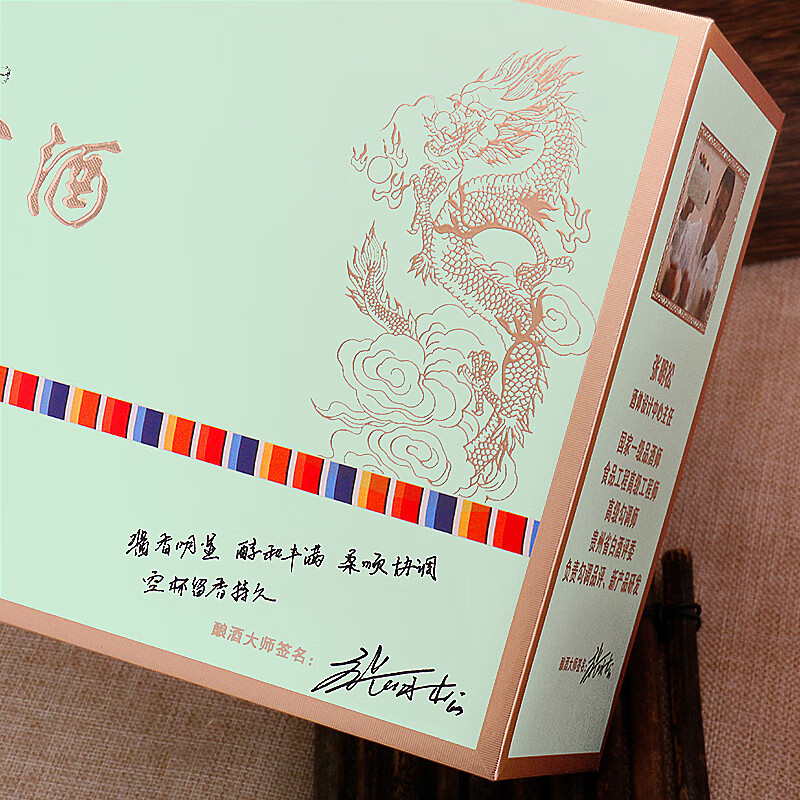 酒
酱香明显 醇和丰满 柔顺协调
空杯留香持久
酿酒大师签名：
酒体设计中心主任
国家一级品酒师
食品工程高级工程师
高级勾调师
贵州省白酒评委
负责勾调品评、新产品研发
酿酒大师签名：